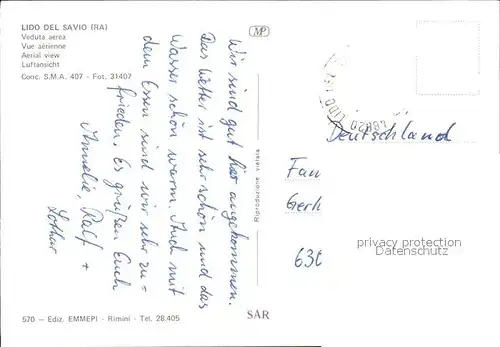 LIDO DEL SAVIO (RA)
Veduta aerea
Vue aérienne
Aerial view
Luftansicht
Conc. S.M.A. 407 - Fot. 31407
MP
Wir sind gut hier angekommen.
Das Wetter ist sehr schön und das
Wasser schön warm. Auch mit
dem Essen sind wir sehr zu=
frieden. Es grüßen Euch
Amelie, Ralf +
Lothar
Riproduzione vietata
LIDO
Deutschland
Fam
Gerh
636
privacy protection
Datenschutz
570 - Ediz. EMMEPI - Rimini - Tel. 28.405
SAR